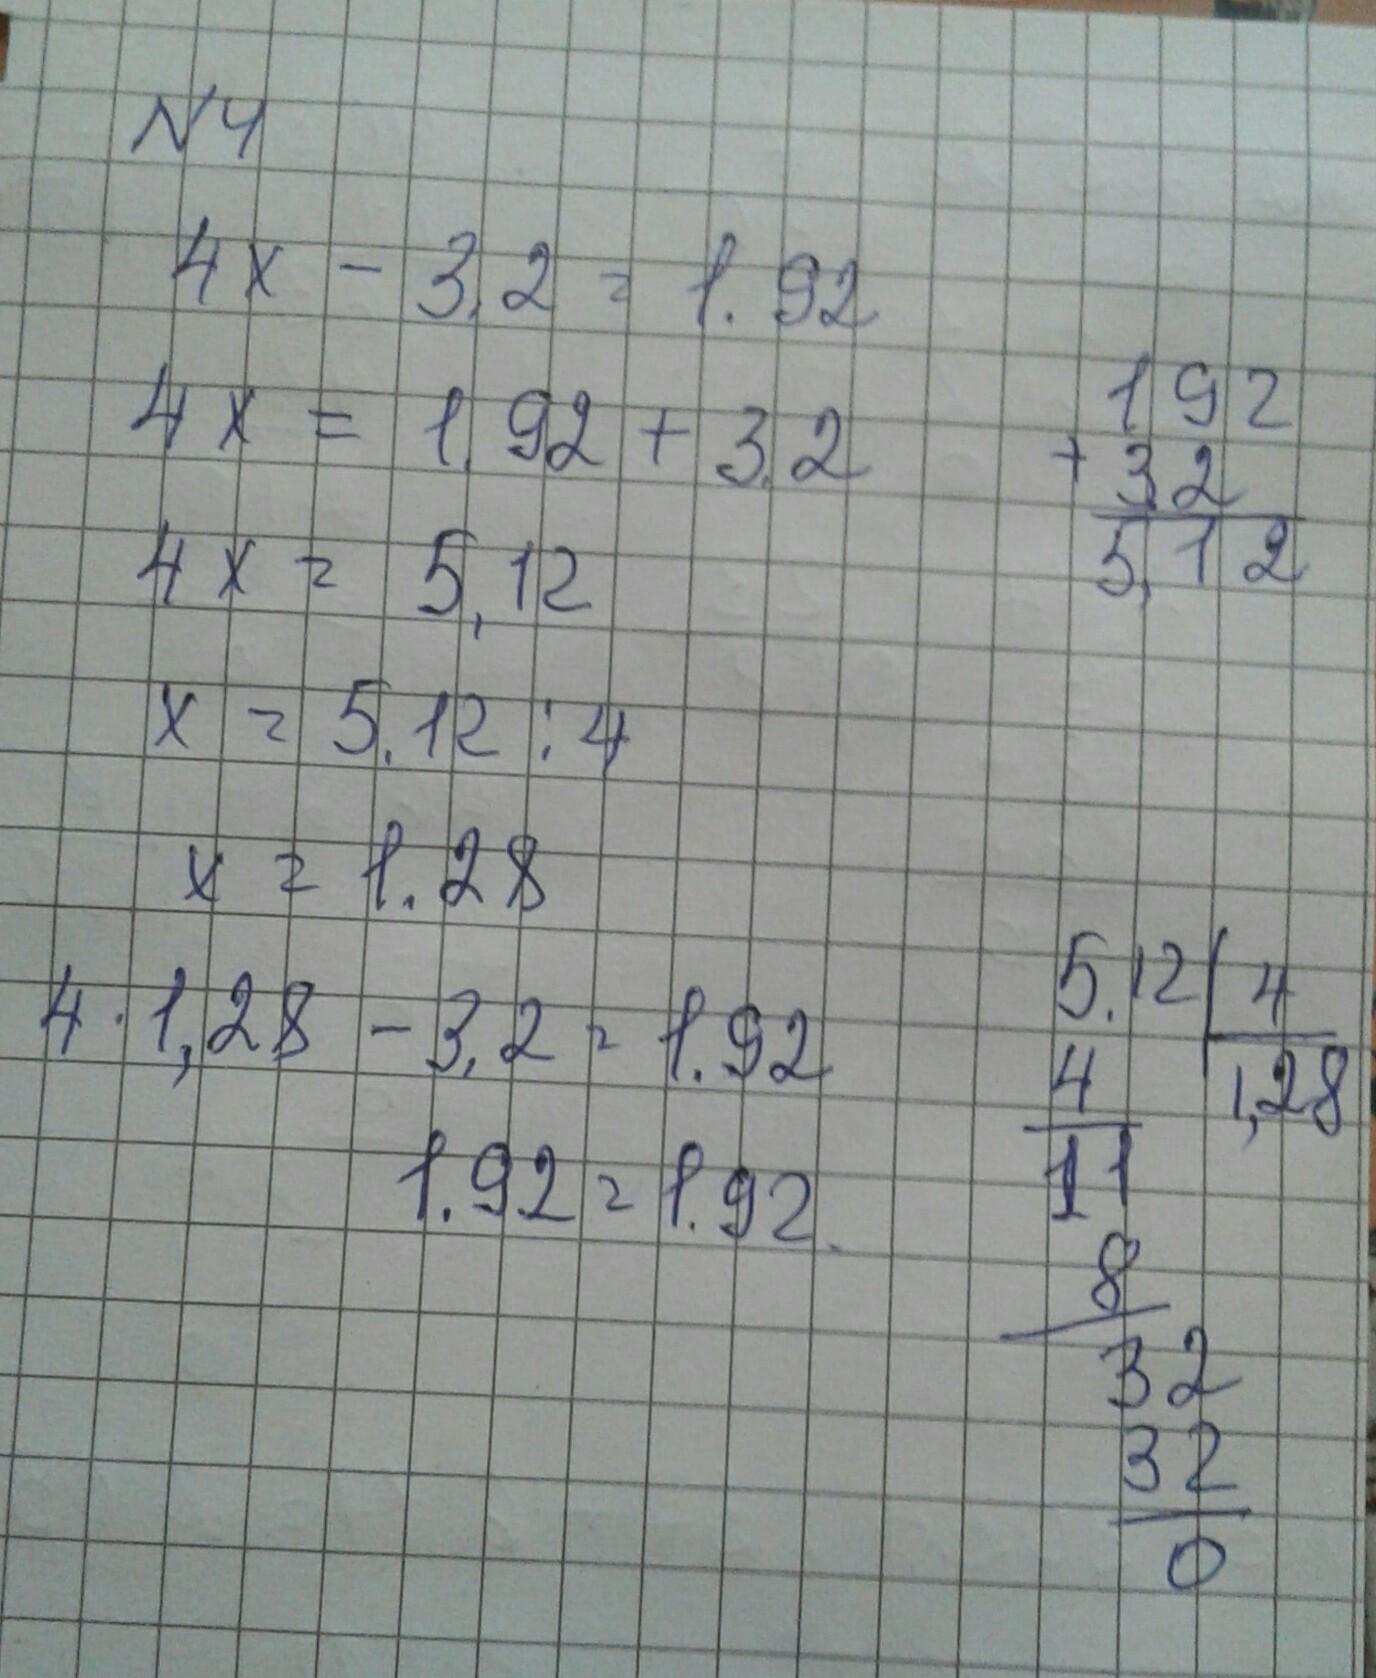 N4
4x - 3,2 = 1.92
4x = 1,92 + 3,2
4x = 5,12
x = 5.12 : 4
x = 1.28
4 · 1,28 - 3,2 = 1.92
1.92 = 1.92
192
+ 32
5,12
5.12 | 4
4 1,28
11
8
32
32
0